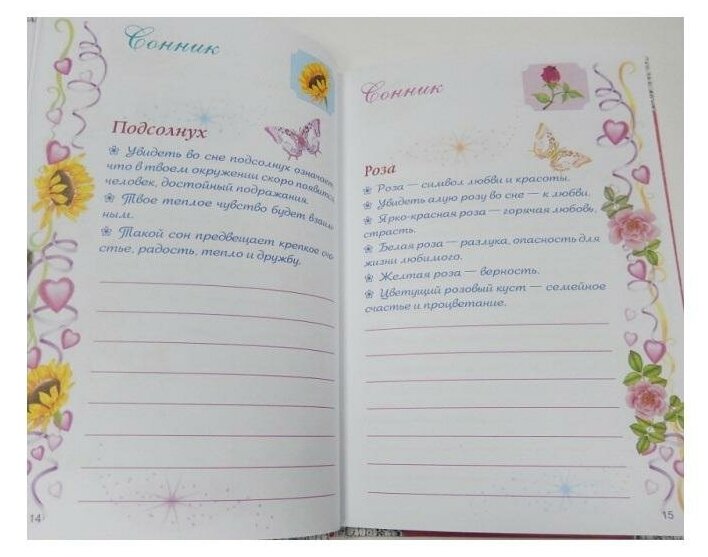 Сонник
Подсолнух
❀ Увидеть во сне подсолнух означает,
что в твоем окружении скоро появится
человек, достойный подражания.
❀ Твое теплое чувство будет взаим-
ным.
❀ Такой сон предвещает крепкое сча-
стье, радость, тепло и дружбу.
14
Сонник
Роза
❀ Роза — символ любви и красоты.
❀ Увидеть алую розу во сне — к любви.
❀ Ярко-красная роза — горячая любовь,
страсть.
❀ Белая роза — разлука, опасность для
жизни любимого.
❀ Желтая роза — верность.
❀ Цветущий розовый куст — семейное
счастье и процветание.
15